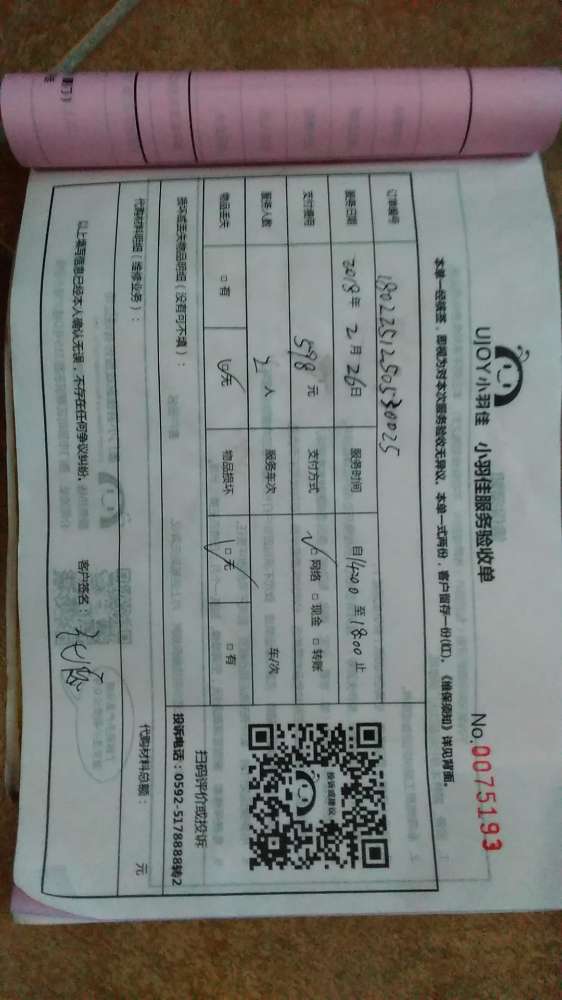 UJOY小羽佳 小羽佳服务验收单 No.0075193
本单一经核签，即视为对本次服务验收无异议。本单一式两份，客户留存一份(红)。《维保须知》详见背面。
订单编号 1802251250530025
服务日期 2018年2月26日 服务时间 自14:00至18:00止
支付费用 598元 支付方式 ☑网络 □现金 □转账
服务人数 2人 服务车次 车/次
物品丢失 □有 ☑无 物品损坏 ☑无 □有
损坏或丢失物品明细（没有可不填）：
投诉或建议
扫码评价或投诉
投诉电话：0592-5178888转2
代购材料明细（维修业务）： 代购材料总额： 元
以上填写信息已经本人确认无误，不存在任何争议纠纷。 客户签名：